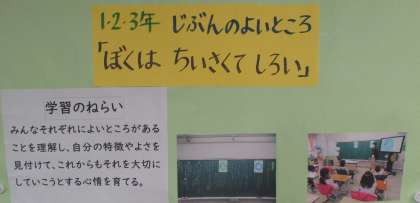 1・2・3年 じぶんのよいところ
「ぼくは ちいさくて しろい」
学習のねらい
みんなそれぞれによいところがある
ことを理解し、自分の特徴やよさを
見付けて、これからもそれを大切に
していこうとする心情を育てる。